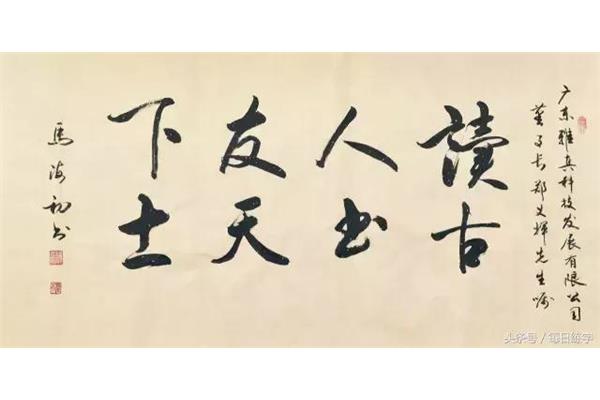 广东雅真科技发展有限公司
董事长郑文辉先生嘱
讀古
人书
友天
下士
馬海初书
头条号/每日练字